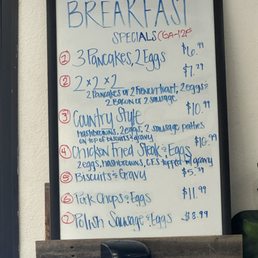 BREAKFAST
SPECIALS (6A-12P
① 3 Pancakes, 2 Eggs $6.99
② 2 x 2 x 2 $7.29
2 Pancakes or 2 French toast, 2 eggs &
2 Bacon or 2 sausage
③ Country Style $10.99
hashbrowns, 2 eggs, 2 sausage patties
on top of biscuits & gravy
④ Chicken Fried Steak & Eggs $10.99
2 eggs, hashbrowns, C.F.S topped w/ gravy
⑤ Biscuits & Gravy $5.99
⑥ Pork Chops & Eggs $11.99
⑦ Polish Sausage & Eggs $8.99